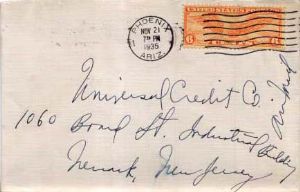 PHOENIX
NOV 21
7 PM
1935
ARIZ.
UNITED STATES
6¢ 6¢
Universal Credit Co.
1060 Broad St. Industrial Building
Newark, New Jersey